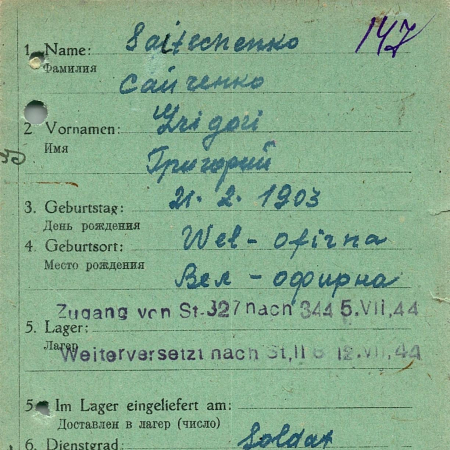 147
1. Name: Saitschenko
Фамилия Сайченко
2 Vornamen: Grigori
Имя Григорий
3. Geburtstag: 21. 2. 1903
День рождения
4. Geburtsort: Wel - ofirna
Место рождения Вел - офирна
Zugang von St. 327 nach 344 5. VII, 44
5. Lager:
Лагер
Weiterversetzt nach St, II 12. VII, 44
5 Im Lager eingeliefert am:
Доставлен в лагер (число)
6. Dienstgrad: Soldat